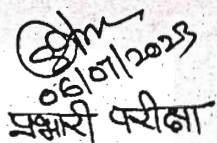 06/07/2023
प्रभारी परीक्षा